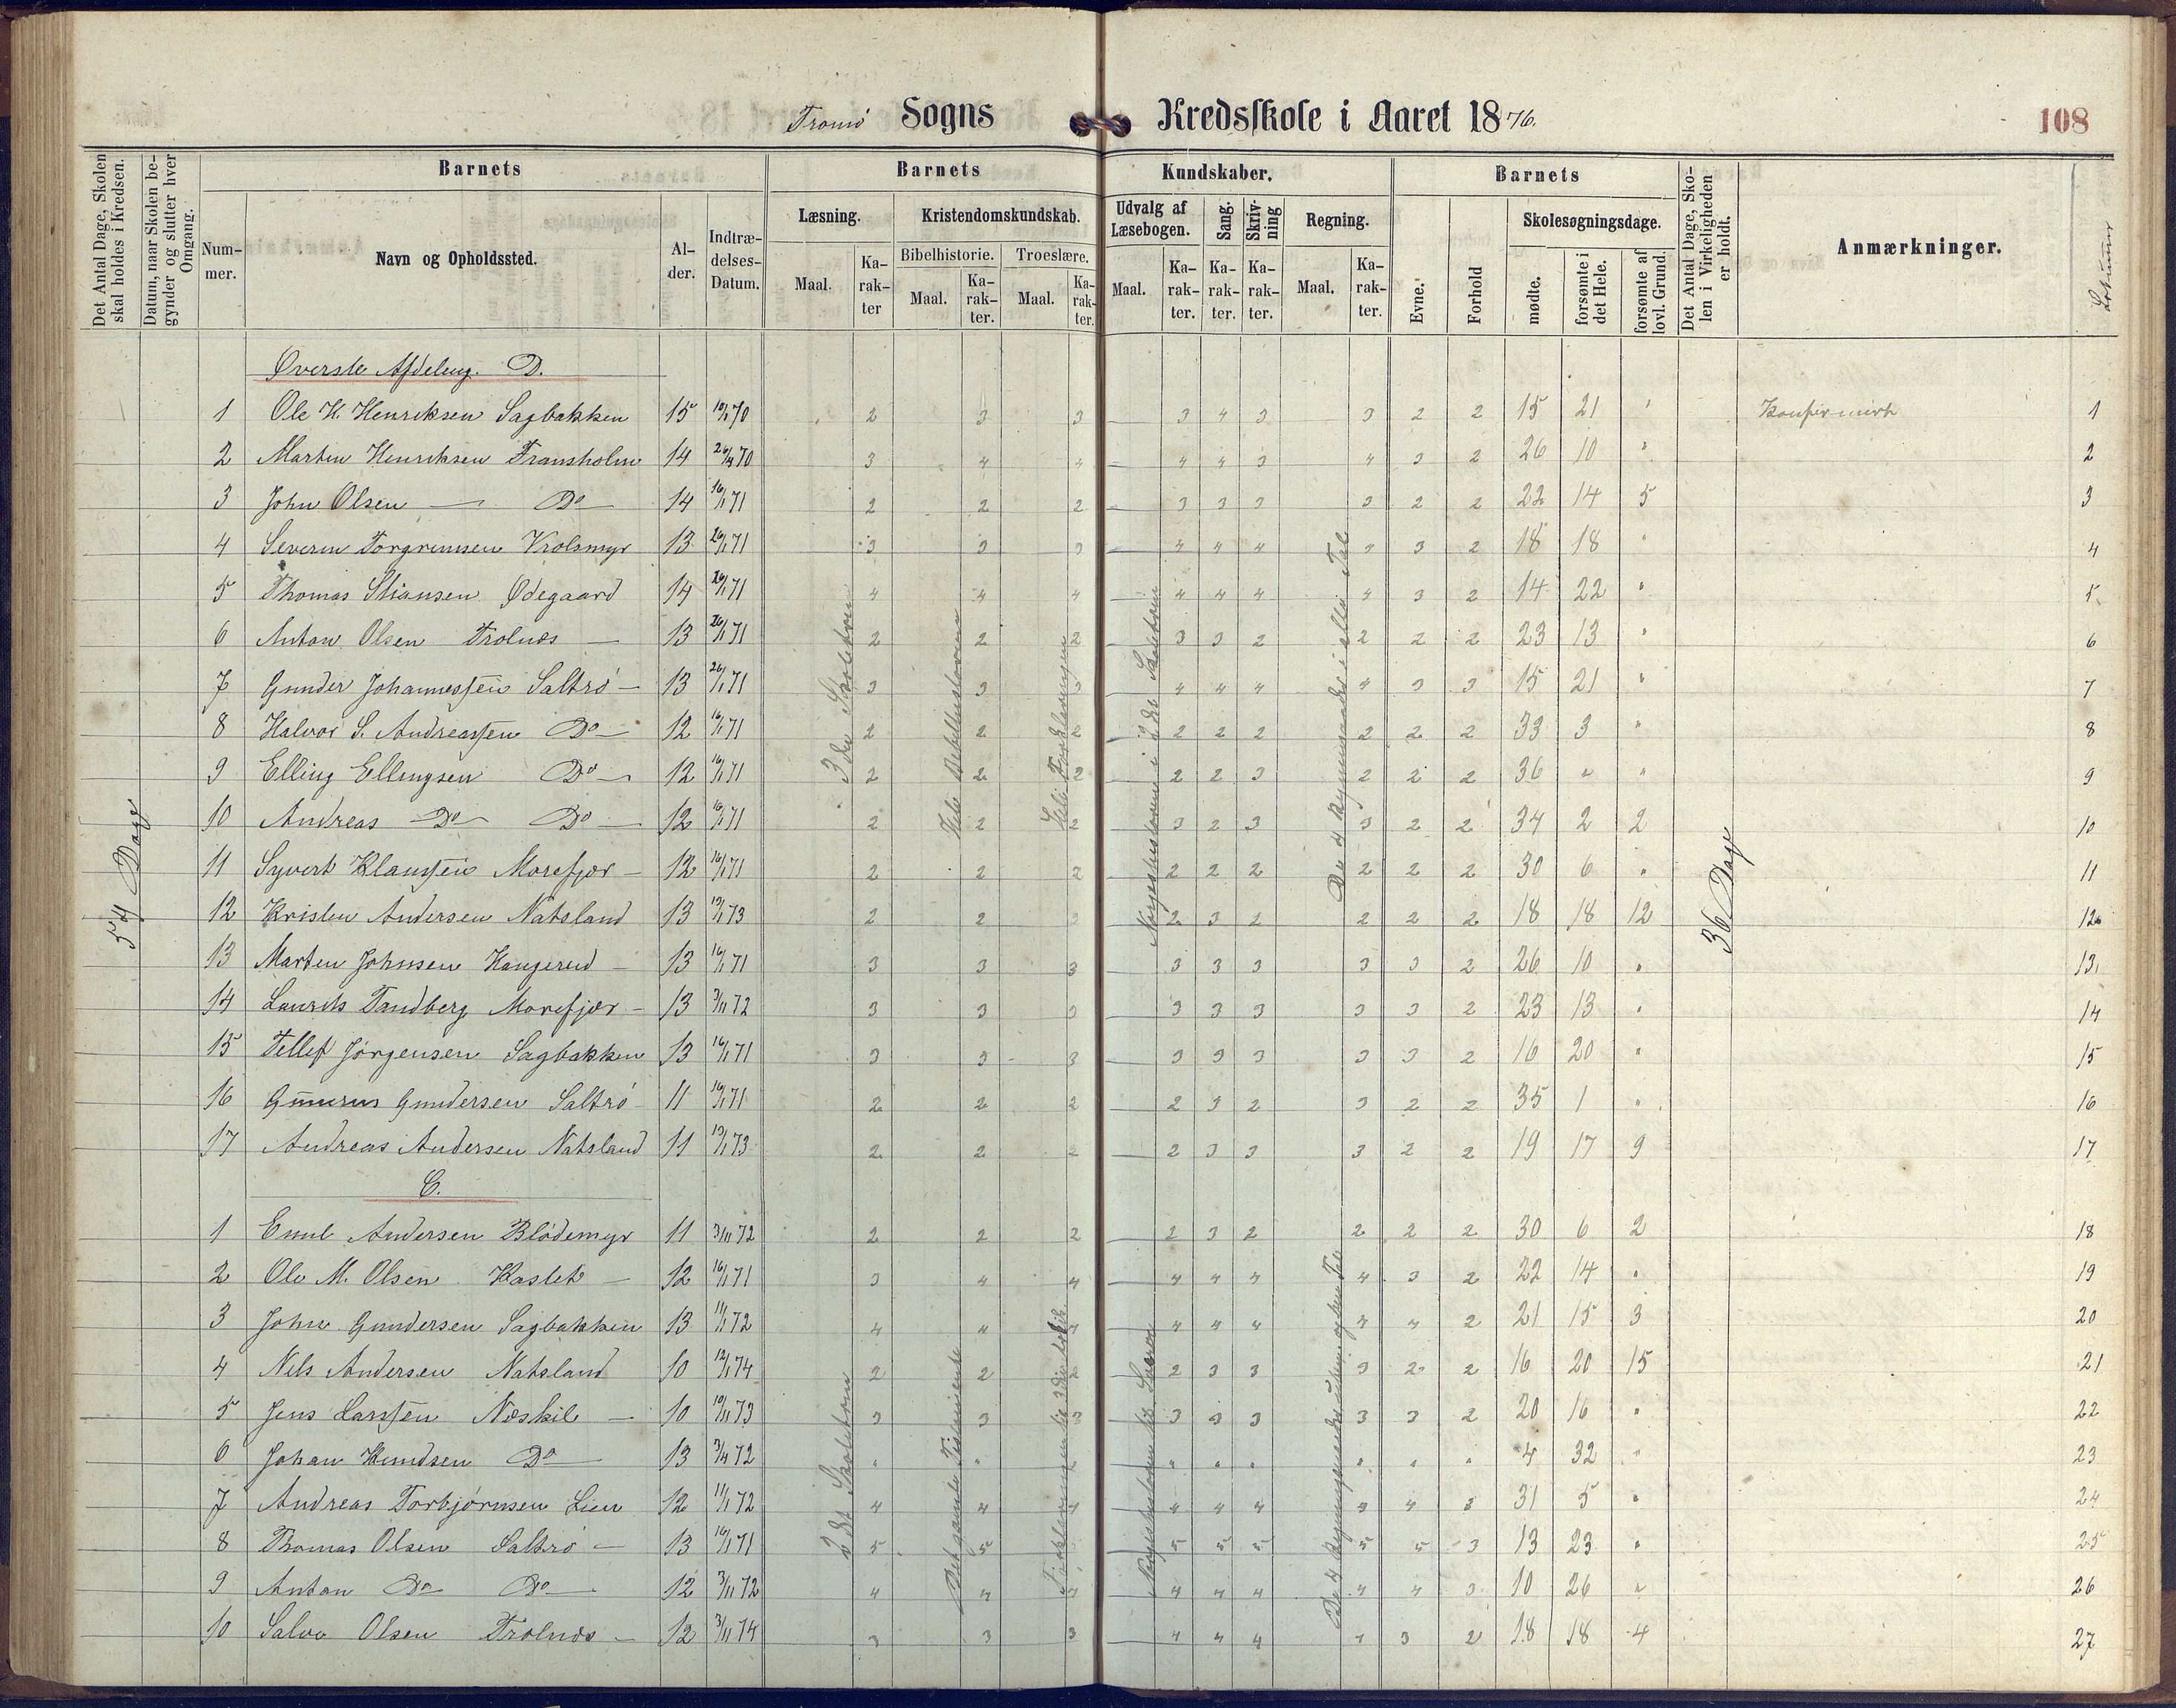 Tromø Sogns Kredsskole i Aaret 1876. 108
Det Antal Dage, Skolen skal holdes i Kredsen.
Datum, naar Skolen begynder og slutter hver Omgang.
Barnets
Barnets Kundskaber.
Barnets
Det Antal Dage, Skolen i Virkeligheden er holdt.
Anmærkninger.
Nummer. Navn og Opholdssted. Alder. Indtrædelses-Datum.
Læsning. Kristendomskundskab. Udvalg af Læsebogen. Sang. Skrivning Regning. Evne. Forhold Skolesøgningsdage.
Bibelhistorie. Troeslære.
Maal. Karakter Maal. Karakter. Maal. Karakter. Maal. Karakter. Karakter. Karakter. Maal. Karakter. mødte. forsømte i det Hele. forsømte af lovl. Grund.
54 Dage
36 Dage
Øverste Afdeling. D.
1 Ole H. Henriksen Sagbakken 15 2 3 3 3 4 3 3 2 2 15 21 " Konfirmirt 1
2 Martin Henriksen Fransholm 14 3 4 4 4 4 3 4 3 2 26 10 " 2
3 John Olsen — Do 14 16/1 71 2 2 2 3 3 3 3 2 2 22 14 5 3
4 Severin Torgrimsen Krolsmyr 13 26/1 71 3 3 3 4 4 4 4 3 2 18 18 " 4
5 Thomas Stiansen Ødegaard 14 26/1 71 4 4 4 4 4 4 4 3 2 14 22 " 5
6 Anton Olsen Trolnæs — 13 26/1 71 2 2 2 3 3 2 2 2 2 23 13 " 6
7 Gunder Johannessen Saltrø — 13 26/1 71 3 3 3 4 4 4 4 3 3 15 21 " 7
8 Halvor S. Andreassen Do — 12 16/1 71 2 2 2 2 2 2 2 2 2 33 3 " 8
9 Elling Ellingsen Do — 12 16/1 71 2 2 2 2 2 3 2 2 2 36 " " 9
10 Andreas Do Do — 12 16/1 71 2 2 2 3 2 3 3 2 2 34 2 2 10
11 Syvert Klaussen Morefjær — 12 16/1 71 2 2 2 2 2 2 2 2 2 30 6 " 11
12 Kristen Andersen Natsland 13 13/1 73 2 2 3 2 3 2 2 2 2 18 18 12 12
13 Marten Johnsen Haugerud — 13 16/1 71 3 3 3 3 3 3 3 3 2 26 10 " 13
14 Laurits Tandberg Morefjær — 13 3/11 72 3 3 3 3 3 3 3 3 2 23 13 " 14
15 Tellef Jørgensen Sagbakken 13 16/1 71 3 3 3 3 3 3 3 3 2 16 20 " 15
16 Gundersen Saltrø 11 16/1 71 2 2 2 2 3 2 3 2 2 35 1 " 16
17 Andreas Andersen Natsland 11 13/1 73 2 2 2 2 3 3 3 2 2 19 17 9 17
C.
1 Emil Andersen Blødemyr 11 3/11 72 2 2 2 2 3 2 2 2 2 30 6 2 18
2 Ole M. Olsen Kastet — 12 16/1 71 3 4 4 4 4 4 4 3 2 22 14 " 19
3 John Gundersen Sagbakken 13 11/1 72 4 4 4 4 4 4 4 4 2 21 15 3 20
4 Nels Andersen Natsland 10 12/1 74 2 2 2 2 3 3 3 2 2 16 20 15 21
5 Jens Larssen Næskil — 10 10/11 73 3 3 3 3 3 3 3 3 2 20 16 " 22
6 Johan Knudsen Do — 13 3/4 72 " " " " " " " " " 4 32 " 23
7 Andreas Torbjørnsen Lien 12 11/1 72 4 4 4 4 4 4 3 4 3 31 5 " 24
8 Thomas Olsen Saltrø — 13 16/1 71 5 5 5 5 5 5 5 3 13 23 " 25
9 Anton Do Do — 12 3/11 72 4 4 4 4 4 4 4 4 3 10 26 " 26
10 Salve Olsen Trolnæs — 12 3/11 74 3 3 3 4 4 4 4 3 2 18 18 4 27
3die Skoletrin
Hele Bibelhistorien
Hele Forklaringen
2det Skoletrin
Det gamle Testamente